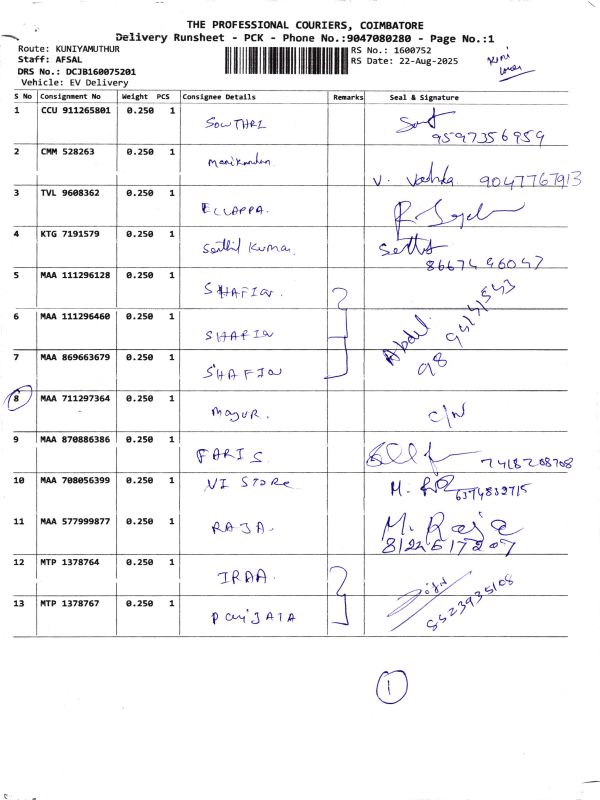 THE PROFESSIONAL COURIERS, COIMBATORE
Delivery Runsheet - PCK - Phone No.:9047080280 - Page No.:1
Route: KUNIYAMUTHUR
RS No.: 1600752
Staff: AFSAL
RS Date: 22-Aug-2025
DRS No.: DCJB160075201
Vehicle: EV Delivery
S No Consignment No Weight PCS Consignee Details Remarks Seal & Signature
1 CCU 911265801 0.250 1 SOWTHRI 9597356959
2 CMM 528263 0.250 1 Manikandan V. 9047767913
3 TVL 9608362 0.250 1 ELLAPPA.
4 KTG 7191579 0.250 1 Senthil Kumar 8667496047
5 MAA 111296128 0.250 1 SHAFIN.
6 MAA 111296460 0.250 1 SHAFIN Abdul.
7 MAA 869663679 0.250 1 SHAFIN
8 MAA 711297364 0.250 1 Mayur. C/N
9 MAA 870886386 0.250 1 FARIS. 7418208708
10 MAA 708056399 0.250 1 VI STORE M. 6374832715
11 MAA 577999877 0.250 1 RAJA. M. Raja
8122617207
12 MTP 1378764 0.250 1 IRAA.
13 MTP 1378767 0.250 1 8523935108
1